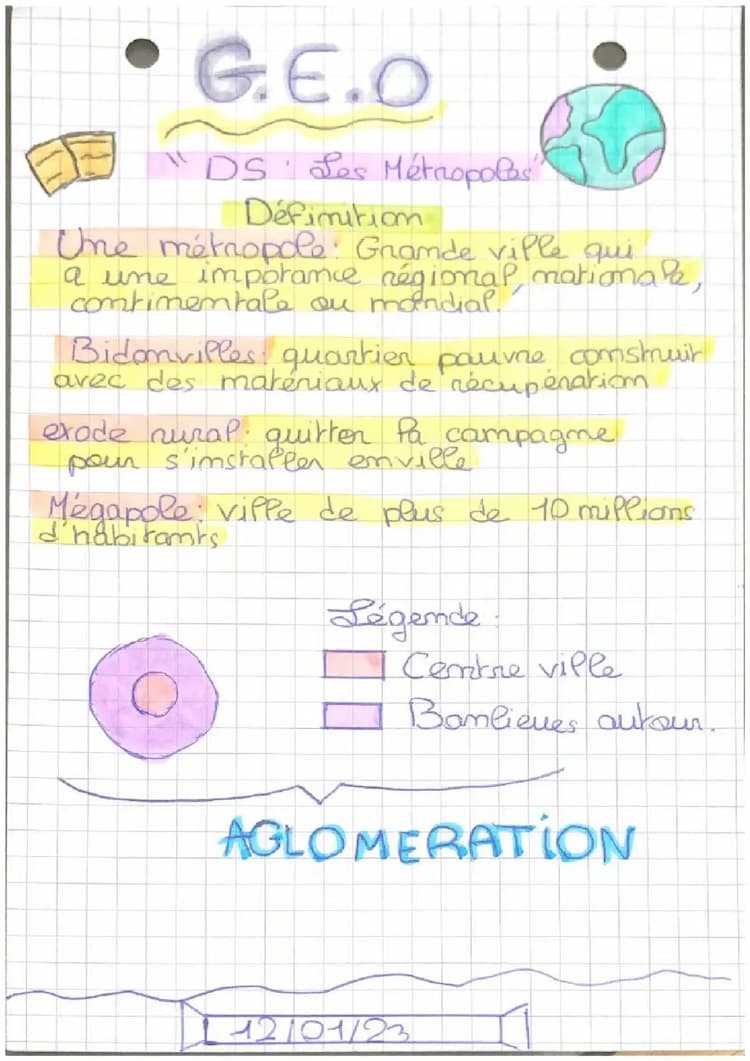 G.E.O
"DS : Les Métropoles"
Définition
Une métropole: Grande ville qui
a une importance régional, nationale,
continentale ou mondial.
Bidonvilles: quartier pauvre construit
avec des matériaux de récupération
exode rural: quitter la campagne
pour s'installer en ville
Mégapole: ville de plus de 10 millions
d'habitants
Légende :
Centre ville
Banlieues autour.
AGLOMERATiON
12/01/23